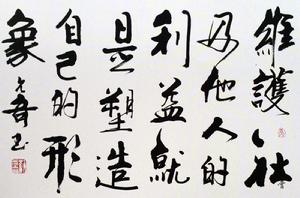 維護
及他人的
利益就
是塑造
自己的形
象